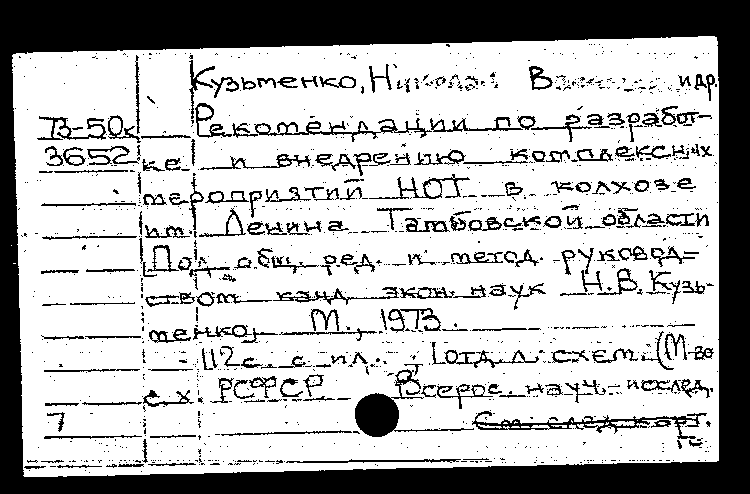 Кузьменко, Николай В и др.
73-50к Рекомендации по разработ-
3652 ке и внедрению комплексных
мероприятий НОТ в колхозе
им. Ленина Тамбовской области
[Под общ. ред. и метод. руковод-
ством канд. экон. наук Н.В. Кузь-
менко]. М., 1973.
112 с. с ил.; 1 отд. л. схем. (М-во
с. х. РСФСР. Всерос. науч.-исслед.
7 См. след. карт.